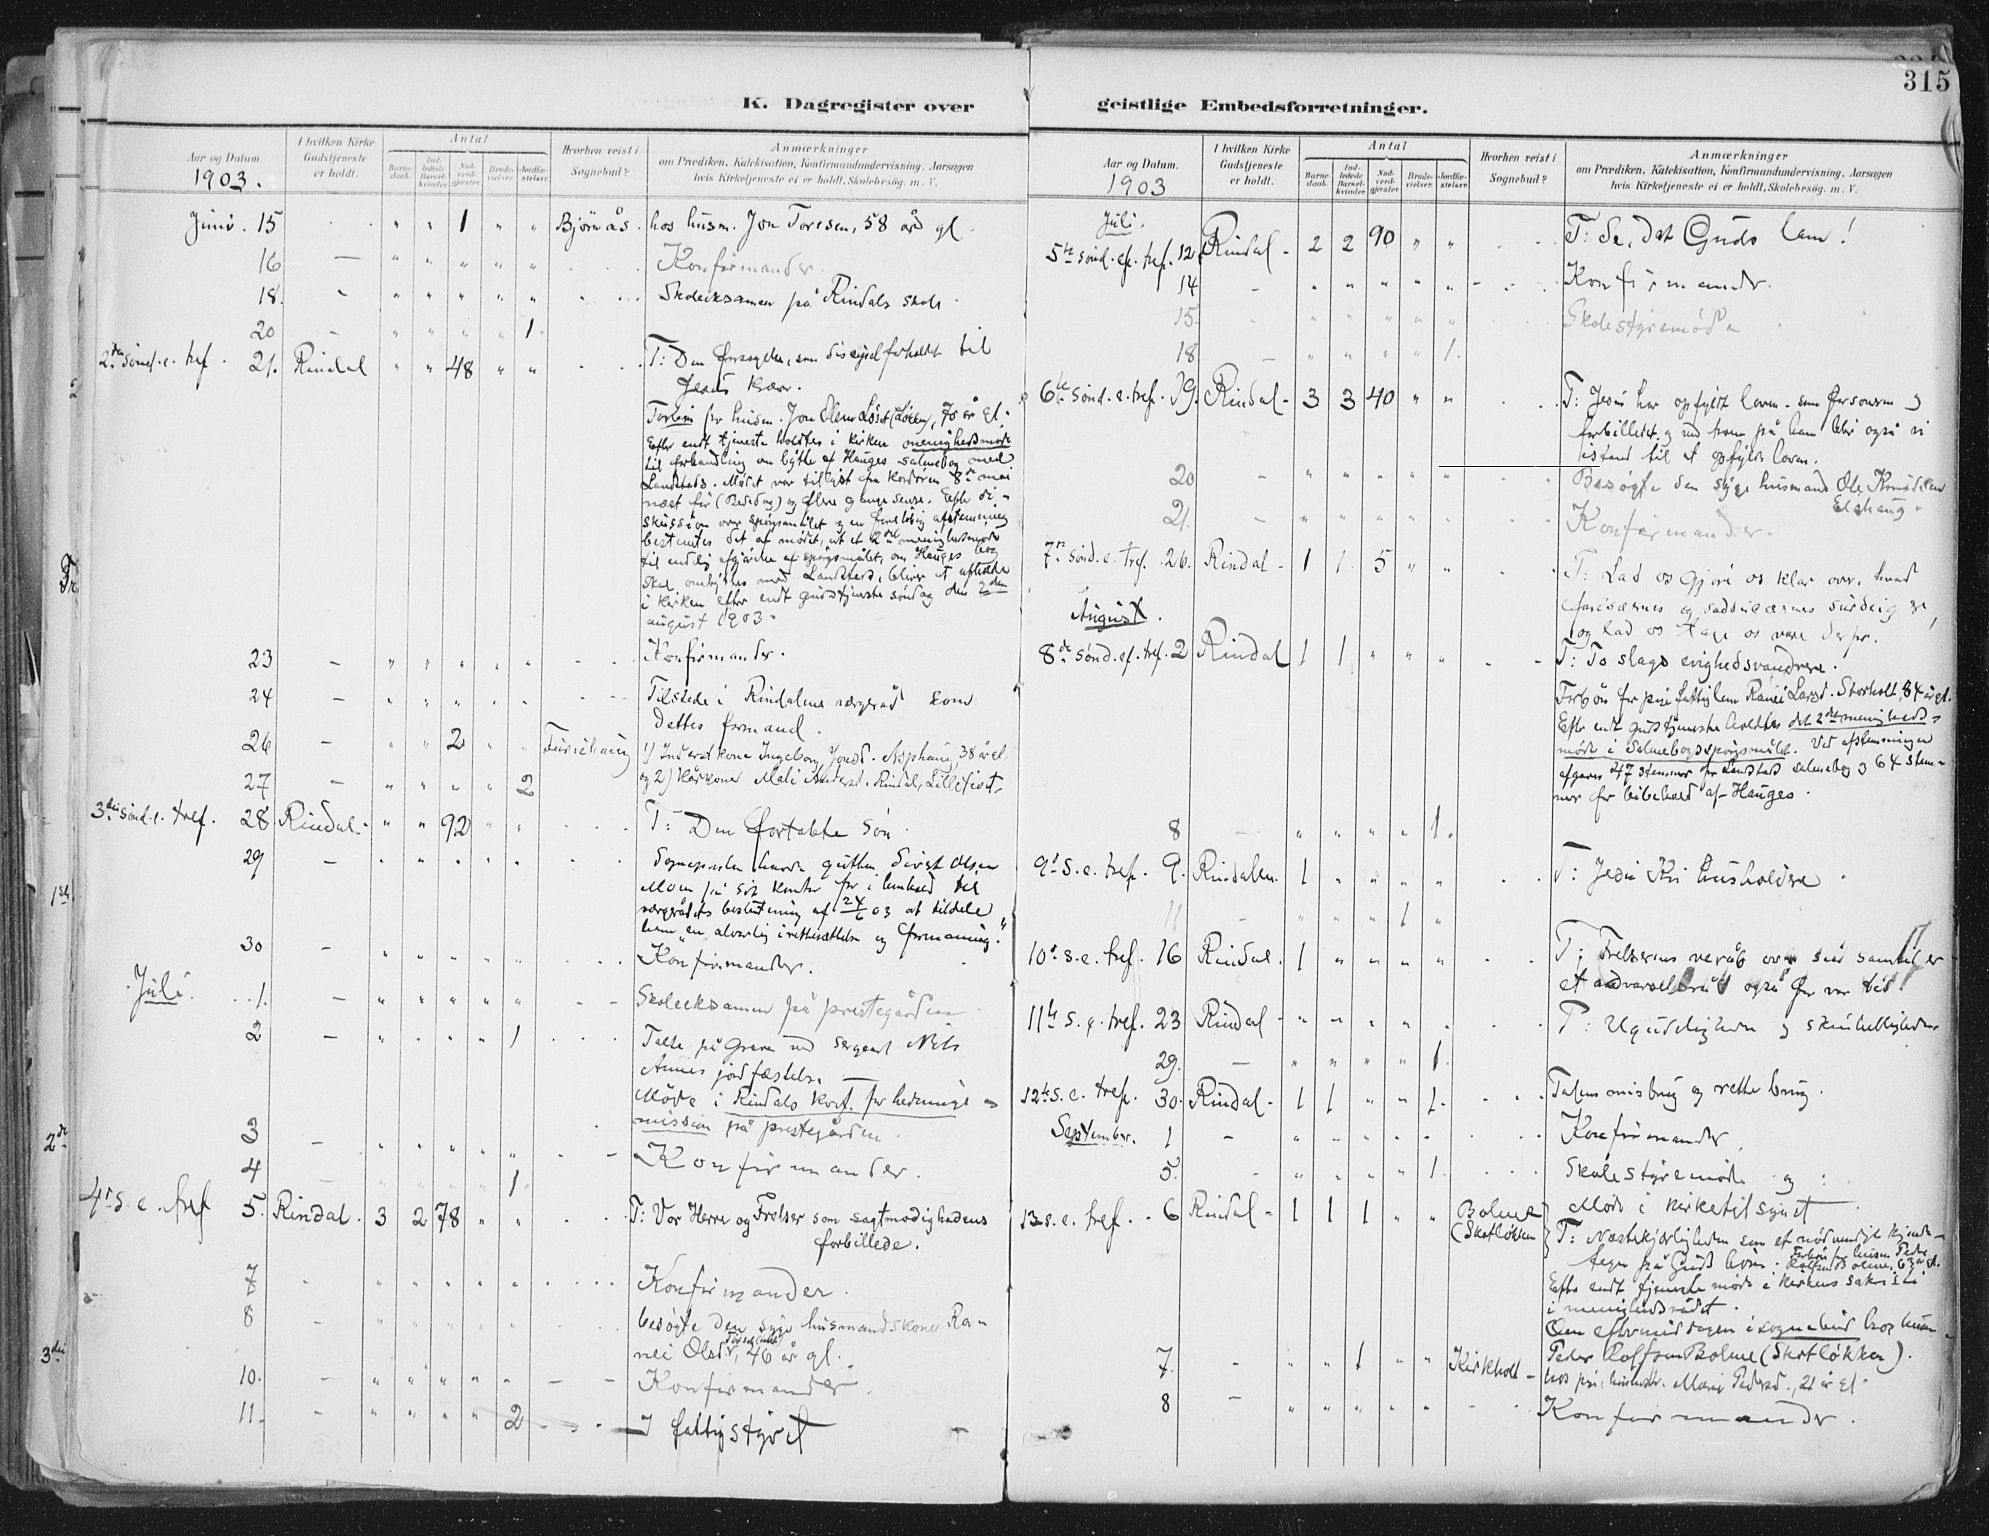 315
K. Dagregister over geistlige Embedsforretninger.
Aar og Datum.
1903.
I hvilken Kirke Gudstjeneste er holdt.
Antal
Barne-daab.
Ind-ledede Barsel-kvinder.
Nad-verd-gjester.
Brude-vielser.
Jordfæ-stelser.
Hvorhen reist i Sognebud?
Anmærkninger
om Prædiken, Katekisation, Konfirmandundervisning, Aarsagen
hvis Kirketjeneste ei er holdt, Skolebesøg. m. V.
Juni. 15 " " 1 " " Bjørnås. hos husm. Jon Toresen, 58 år gl.
16 — " " " " " Konfirmander.
18. " " " " " Skoleeksamen på Rindals skole.
20 — " " " " 1.
2den sønd. e. tref. 21. Rindal " " 48 " " T: Den forsagelse, som discipelforholdet til
Jesus kræver.
Forbøn for husm. Jon Olsen Løset (Løkken), 70 år gl.
Efter endt tjeneste holdtes i kirken menighedsmøde
til forhandling om bytte af Hauges salmebog med
Landstads. Mødet var tillyst fra kordøren 8de mai
næst før (Bededag) og flere gange senere. Efter di-
skussion over spørgsmålet og en foreløbig afstemning
bestemtes det af mødet, at et 2det menighedsmøde
til endelig afgjørelse af spørgsmålet, om Hauges bog
skal ombyttes med Landstads, bliver at afholde
i kirken efter endt gudstjeneste søndag den 2den
august 1903.
23 — " " " " " Konfirmander.
24 — Tilstede i Rindalens værgeråd som
dettes formand.
26 — " " 2 " " Furuhaug 1) Inderstkone Ingeborg Jonsd. Aasphaug, 38 år gl.
27 — " " " " 2 og 2) kårkone Mali Andersd. Rindal, Lilletrøst.
3die sønd. e. tref. 28 Rindal. " " 92 " " T: Den fortabte søn.
29 — Sognepresten havde gutten Sivert Olsen
Moen på sit kontor for i henhold til
værgerådets beslutning af 24/6 03 at tildele
ham "en alvorlig irettesættelse og formaning."
30 — " " " " " Konfirmander.
Juli. 1. — " " " " " Skoleeksamen på prestegården
2 — " " " " 1 Tale på graven ved sergeant Nils
Aunes jordfæstelse.
Møde i Rindals kref. for hednings-
mission på prestegården.
3 — " " " " " Konfirmander.
4 — " " " " 1.
4de s. e. tref 5. Rindal. 3 2 78 " " T: Vor Herre og Frelser som sagtmodighedens
forbillede.
7 " " " " " Konfirmander.
8 " " " " " besøgte den syge husmandskone Ran-
nei Olsdr., 46 år gl.
10. — " " " " " Konfirmander.
11. — " " " " 2 I fattigstyret
Aar og Datum.
1903
I hvilken Kirke Gudstjeneste er holdt.
Antal
Barne-daab.
Ind-ledede Barsel-kvinder.
Nad-verd-gjester.
Brude-vielser.
Jordfæ-stelser.
Hvorhen reist i Sognebud?
Anmærkninger
om Prædiken, Katekisation, Konfirmandundervisning, Aarsagen
hvis Kirketjeneste ei er holdt, Skolebesøg. m. V.
Juli.
5te sønd. ef. tref. 12. Rindal - 2 2 90 " " T: Se, det Guds lam!
14 — " " " " " Konfirmander.
15. " " " " " Skolestyremøde
18 — " " " " 1.
6te sønd. e. tref. 19. Rindal - 3 3 40 " " T: Jesus har opfyldt loven som forsoneren og
forbilledet, og ved troen på ham blir også vi
istand til at opfylde loven.
20 — " " " " " Besøgte den syge husmand Ole Knudsen
Elshaug.
21. — " " " " " Konfirmander.
7de sønd. e. tref. 26. Rindal - 1 1 5 " " T: Lad os gjøre os klar over, hvad
farisæernes og saddukæernes surdeig er,
og lad os tage os vare derfor.
August.
8de sønd. ef. tref. 2 Rindal 1 1 " " " T: To slags evighedsvandrere.
Forbøn for pige fattiglem Ranei Larsd. Storholt, 84 år gl.
Efter endt gudstjeneste holdtes det 2det menigheds-
møde i Salmebogsspørgsmålet. Ved afstemningen
afgaves 47 stemmer for Landstads salmebog og 64 stem-
mer for bibehold af Hauges.
8 — " " " " 1.
9de s. e. tref. 9. Rindalen. 1 " " " " T: Jesu Kri husholdere
11 - " " " 1 "
10de s. e. tref. 16 Rindal. 1 " " " " T: Frelserens veråb over sin samtid er
et advarselsråb også for vor tid.
11te s. e. tref. 23 Rindal - " " " " " T: Ugudeligheden og skinhelligheden
29. — " " " " 1.
12te s. e. tref. 30. Rindal - 1 1 " " 1. Talens misbrug og rette brug.
September. 1 — " " " " " Konfirmander.
5. - " " " " 1. Skolestyremøde og
Møde i kirketilsynet
13de s. e. tref. 6 Rindal - 1 1 1 " " Bolme (Skotløkken T: Næstekjærligheden som et nødvendigt kjende-
tegn på Guds børn. Forbøn for husm. Peder
Rolfsen Bolme, 63 år gl.
Efter endt tjeneste møde i kirkens sakristi
i menighedsrådet.
Om eftermiddagen i sognebud hos husm.
Peder Rolfsen Bolme (Skotløkken).
7. - " " 1 " " Kirkholt - hos pige, Marie Pedersd., 21 år gl.
8 — " " " " " Konfirmander.